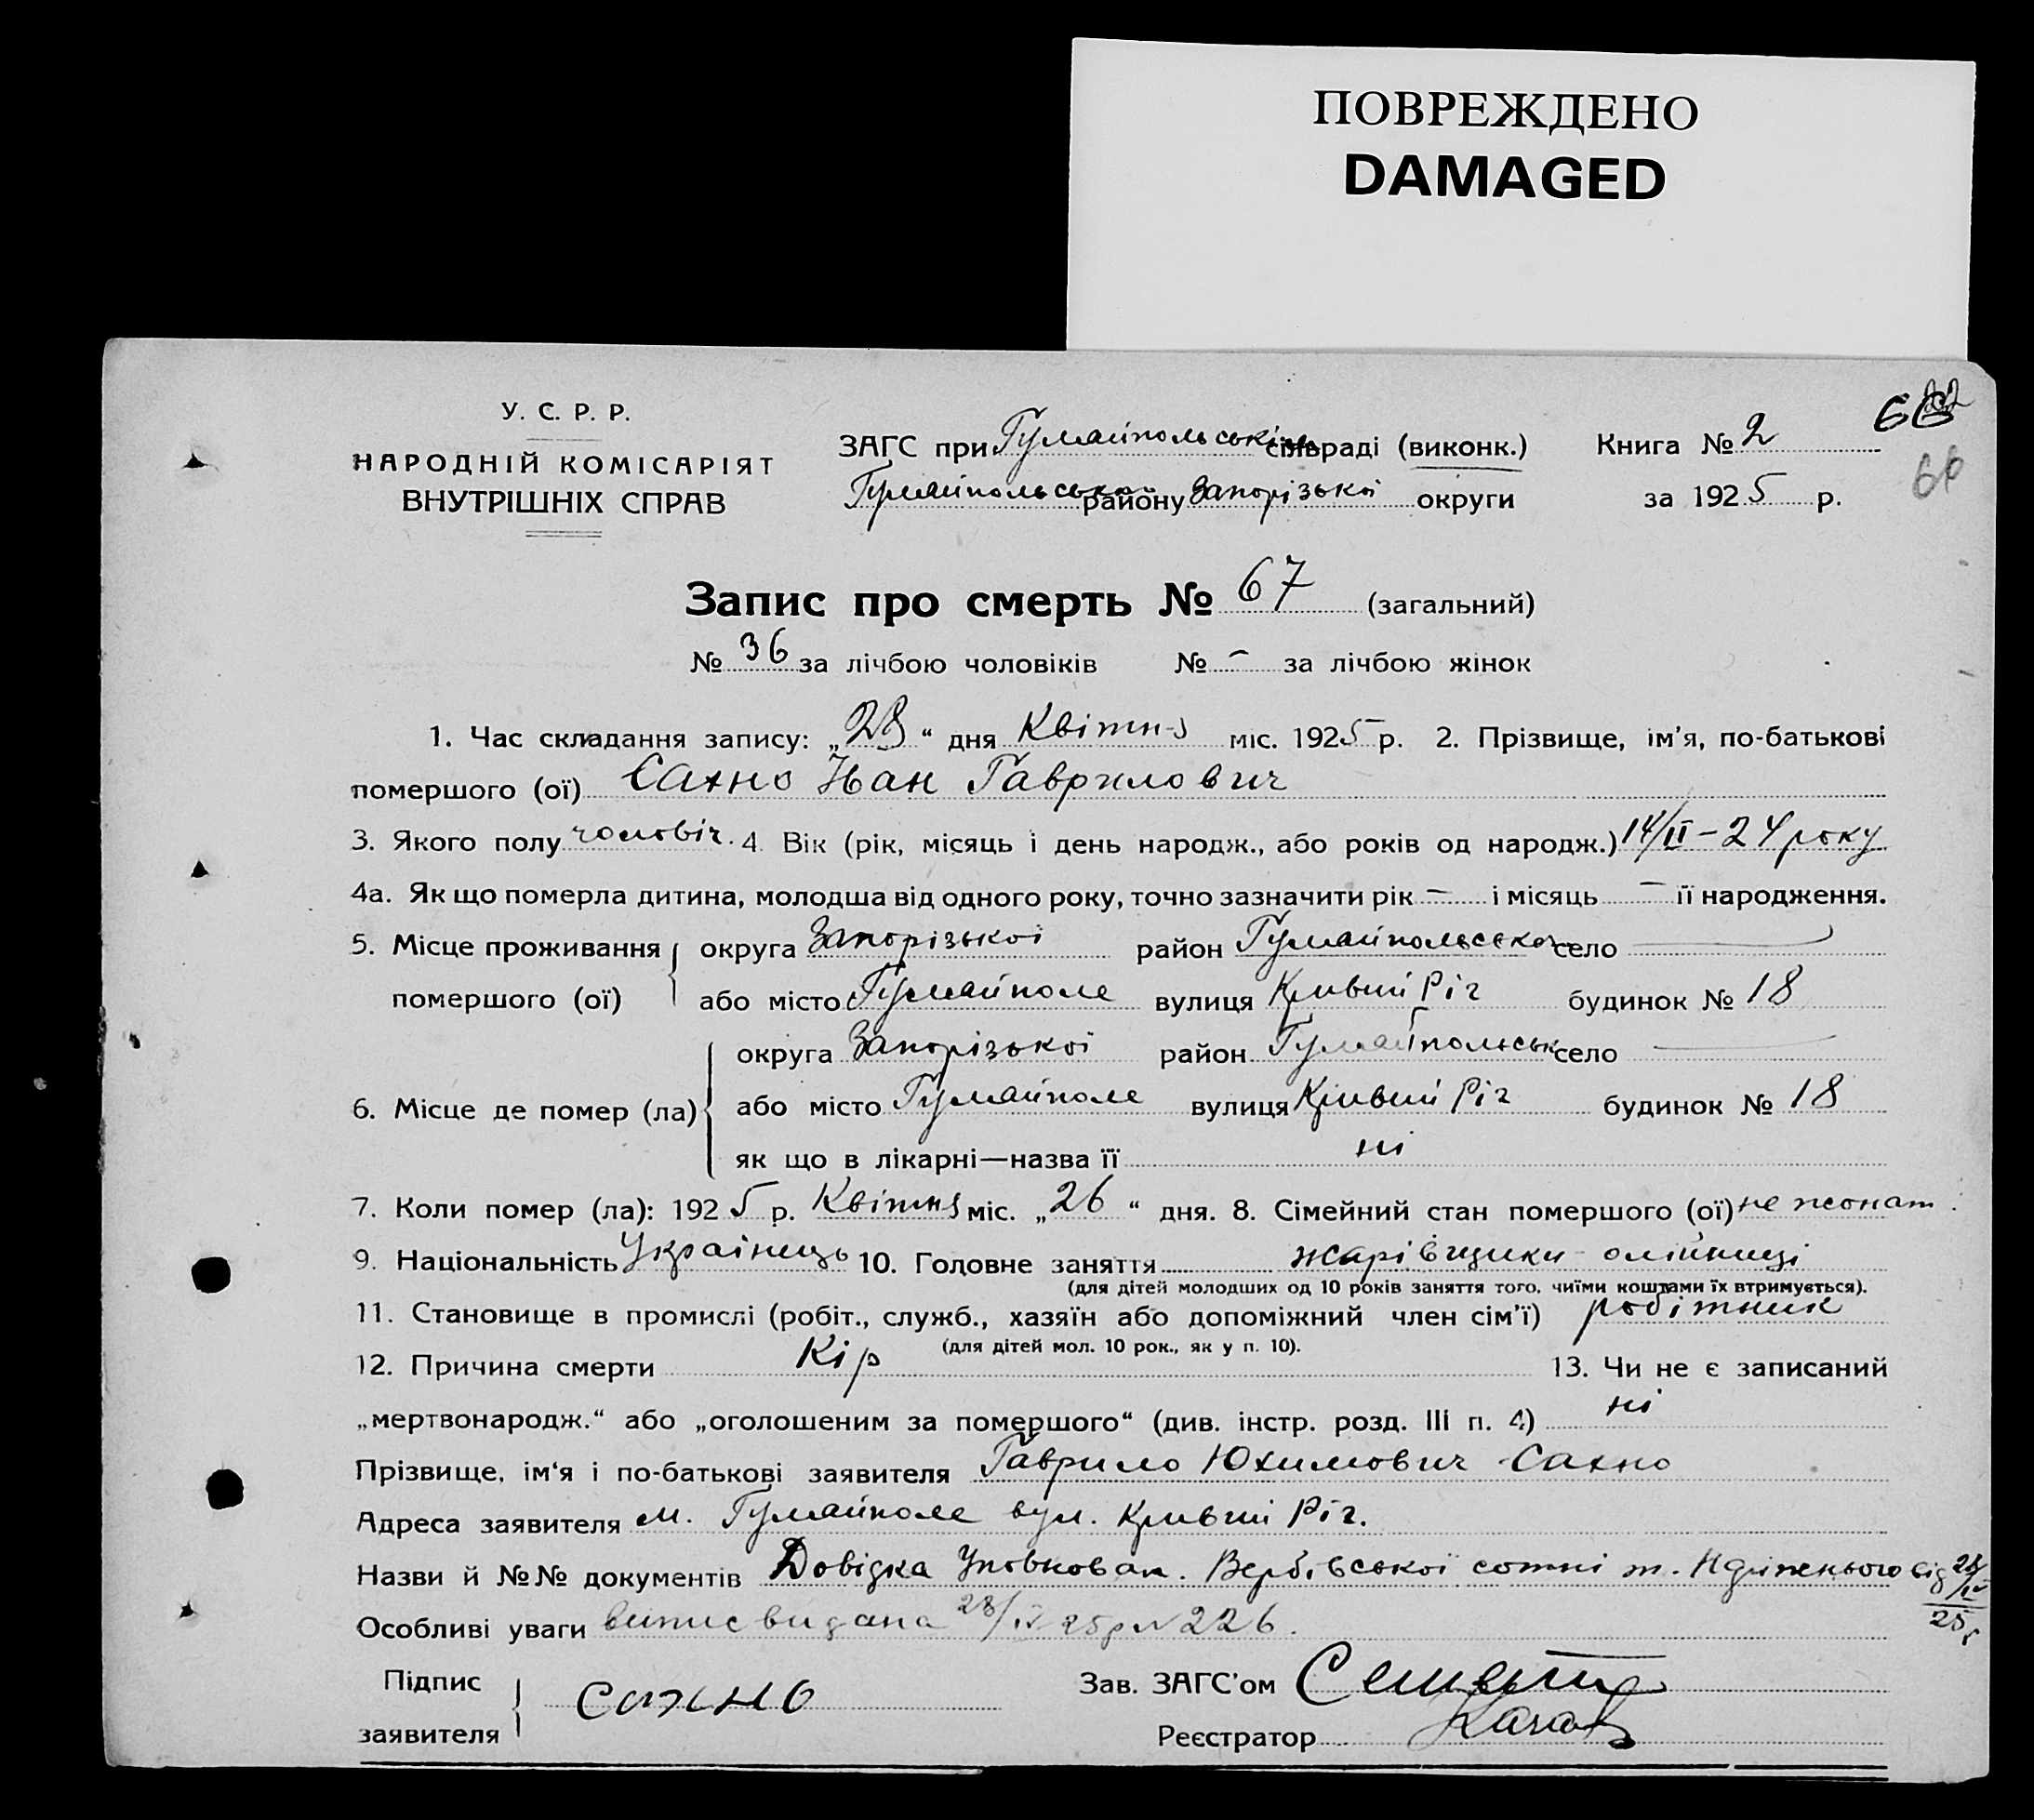 ПОВРЕЖДЕНО
DAMAGED
У. С. Р. Р.
НАРОДНІЙ КОМІСАРІЯТ
ВНУТРІШНІХ СПРАВ
ЗАГС при Гуляйпольськім сільраді (виконк.)
Гуляйпольського району Запорізької округи
Книга № 2
за 1925 р.
66
Запис про смерть № 67 (загальний)
№ 36 за лічбою чоловіків № – за лічбою жінок
1. Час складання запису: „28“ дня Квітня міс. 1925 р. 2. Прізвище, ім’я, по-батькові
помершого (ої) Сахно Іван Гаврилович
3. Якого полу чоловіч. 4. Вік (рік, місяць і день народж., або років од народж.) 14/II – 24 року
4а. Як що померла дитина, молодша від одного року, точно зазначити рік – і місяць – її народження.
5. Місце проживання округа Запорізької район Гуляйпольського село —
помершого (ої) або місто Гуляйполе вулиця Кривий Ріг будинок № 18
округа Запорізької район Гуляйпольськ село —
6. Місце де помер (ла) або місто Гуляйполе вулиця Кривий Ріг будинок № 18
як що в лікарні—назва її ні
7. Коли помер (ла): 1925 р. Квітня міс. „26“ дня. 8. Сімейний стан помершого (ої) не жонат.
9. Національність Українець 10. Головне заняття олійниці
(для дітей молодших од 10 років заняття того, чиїми коштами їх втримується).
11. Становище в промислі (робіт., служб., хазяїн або допоміжний член сім’ї) робітник
(для дітей мол. 10 рок., як у п. 10).
12. Причина смерти Кір 13. Чи не є записаний
„мертвонародж.“ або „оголошеним за помершого“ (див. інстр. розд. III п. 4) ні
Прізвище, ім‘я і по-батькові заявителя Гаврило Юхимович Сахно
Адреса заявителя м. Гуляйполе вул. Кривий Ріг.
Назви й №№ документів Довідка Уповноваж. Вербівської сотні т. від 28/IV 25 р
Особливі уваги витис видана 28/IV 25 р № 226.
Підпис
заявителя Сахно
Зав. ЗАГС’ом
Реєстратор